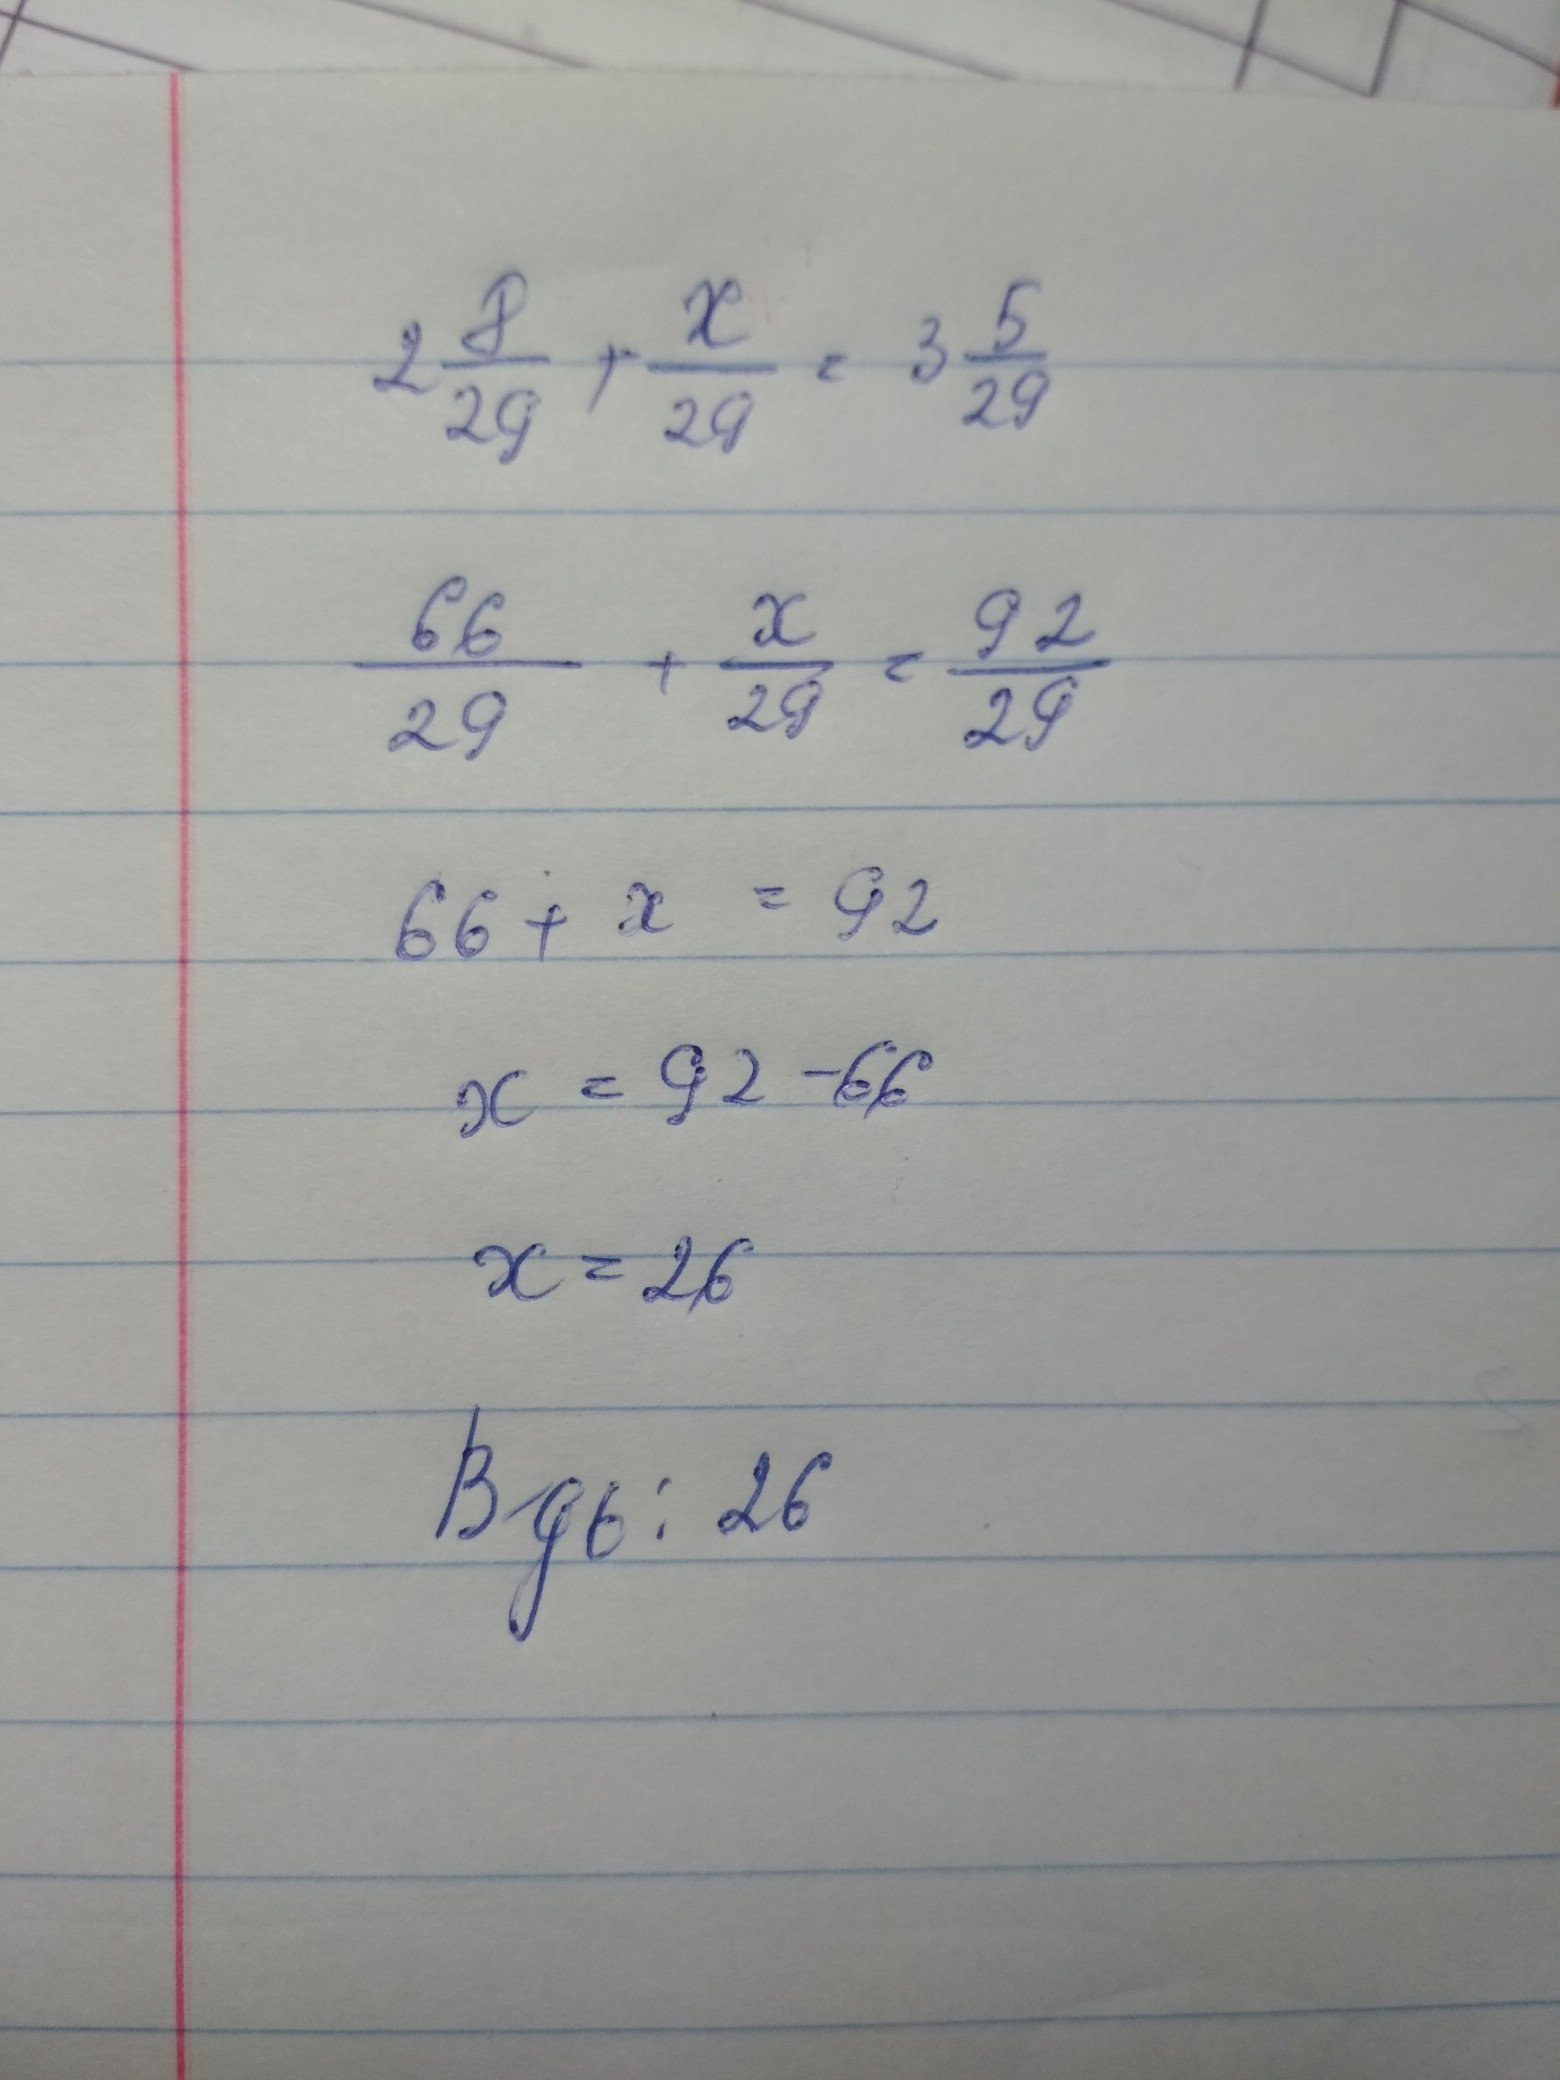 2 8/29 + x/29 = 3 5/29
66/29 + x/29 = 92/29
66 + x = 92
x = 92 - 66
x = 26
Вдв: 26